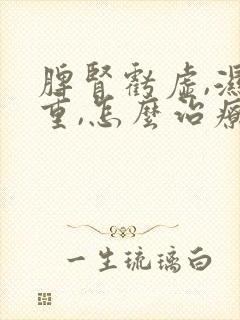 脾腎虧虛,濕
重,怎麼治療
一生琉璃白